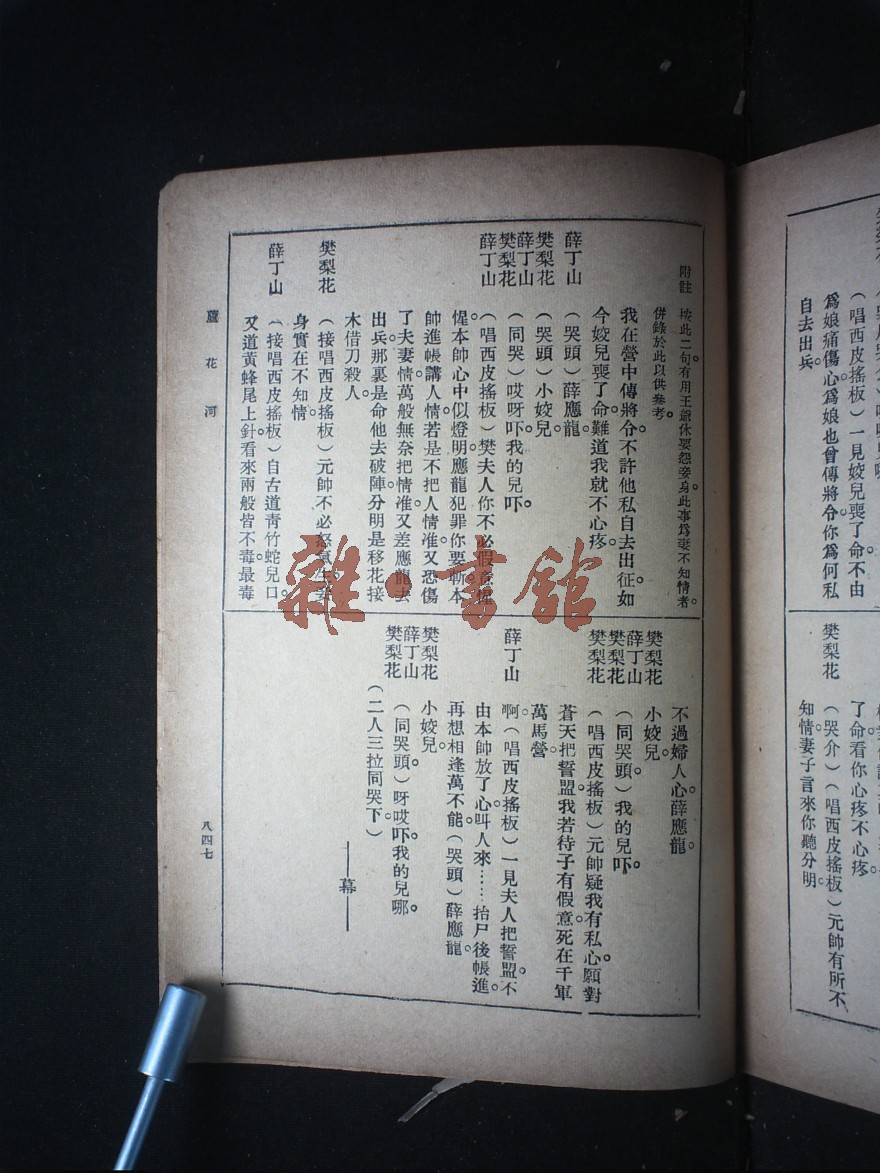 自去出兵。
爲娘痛傷心爲娘也曾傳將令你爲何私
（唱西皮搖板）一見姣兒喪了命不由
樊梨花
（哭介）（唱西皮搖板）元帥有所不
知情妻子言來你聽分明。
了命看你心疼不心疼
附註
按此二句有用王爺休要怨妾身此事爲妻不知情者。
併錄於此以供參考。
我在營中傳將令不許他私自去出征如
今姣兒喪了命難道我就不心疼。
薛丁山
（哭頭）薛應龍。
樊梨花
（哭頭）小姣兒。
薛丁山
樊梨花
（同哭）哎呀吓我的兒吓。
薛丁山
（唱西皮搖板）樊夫人你不必假惺惺
惺本帥心中似燈明應龍犯罪你要斬本
帥進帳講人情若是不把人情准又恐傷
了夫妻情萬般無奈把情准又差應龍去
出兵那裏是命他去破陣分明是移花接
木借刀殺人。
樊梨花
（接唱西皮搖板）元帥不必怒氣生妾
身實在不知情。
薛丁山
（接唱西皮搖板）自古道靑竹蛇兒口。
又道黃蜂尾上針看來兩般皆不毒最毒
不過婦人心薛應龍。
樊梨花
小姣兒。
薛丁山
樊梨花
（同哭頭）我的兒吓。
樊梨花
（唱西皮搖板）元帥疑我有私心願對
蒼天把誓盟我若待子有假意死在千軍
萬馬營
薛丁山
啊（唱西皮搖板）一見夫人把誓盟不
由本帥放了心叫人來……抬尸後帳進。
再想相逢萬不能（哭頭）薛應龍
樊梨花
小姣兒。
薛丁山
樊梨花
（同哭頭）呀哎吓我的兒哪。
（二人三拉同哭下。）
——幕——
蘆花河
八四七
雜·書館